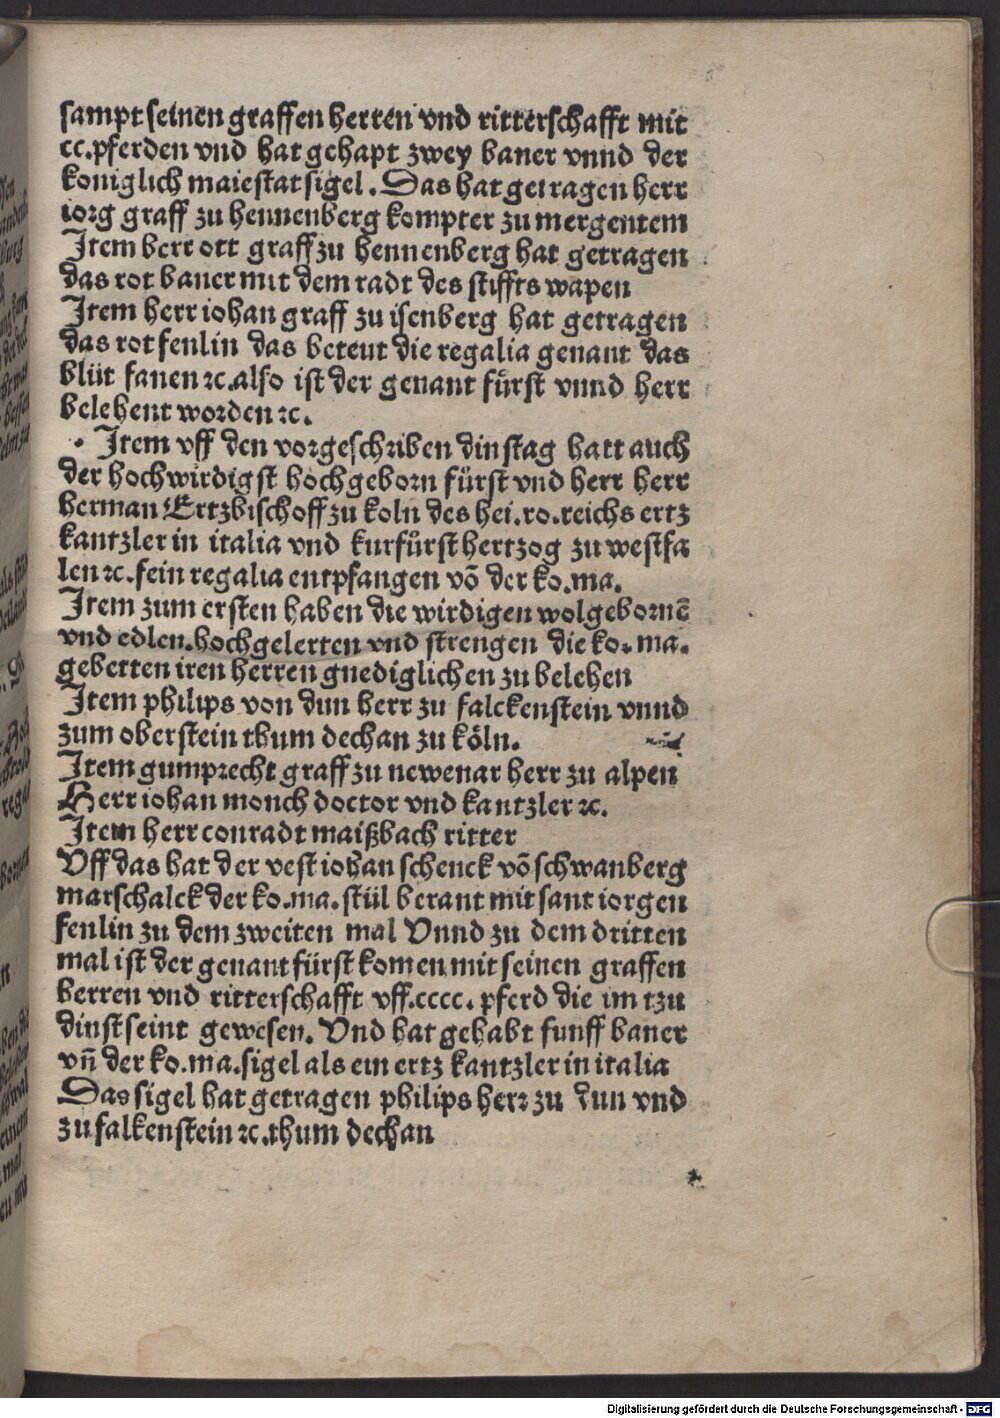 sampt seinen graffen herren vnd ritterschafft mit
cc.pferden vnd hat gehapt zwey baner vnnd der
koniglich maiestat sigel. Das hat getragen herr
iorg graff zu hennenberg kompter zu mergentem
Item herr ott graff zu hennenberg hat getragen
das rot baner mit dem radt des stiffts wapen
Item herr iohan graff zu isenberg hat getragen
das rot fenlin das beteut die regalia genant das
blüt fanen ꝛc.also ist der genant fürst vnnd herr
belehent worden ꝛc.
Item vff den vorgeschriben dinstag hatt auch
der hochwirdigst hochgeborn fürst vnd herr herr
herman Ertzbischoff zu koln des hei.ro.reichs ertz
kantzler in italia vnd kurfürst hertzog zu westfa
len ꝛc.sein regalia entpfangen võ der ko.ma.
Item zum ersten haben die wirdigen wolgebornē
vnd edlen.hochgelerten vnd strengen die ko.ma.
gebetten iren herren gnediglichen zu belehen
Item philips von dun herr zu falckenstein vnnd
zum oberstein thum dechan zu köln.
Item gumprecht graff zu newenar herr zu alpen
Herr iohan monch doctor vnd kantzler ꝛc.
Item herr conradt maißbach ritter
Vff das hat der vest iohan schenck võ schwanberg
marschalck der ko.ma.stül berant mit sant iorgen
fenlin zu dem zweiten mal Vnnd zu dem dritten
mal ist der genant fürst komen mit seinen graffen
herren vnd ritterschafft vff.cccc.pferd die im tzu
dinst seint gewesen. Vnd hat gehabt funff baner
vñ der ko.ma.sigel als ein ertz kantzler in italia
Das sigel hat getragen philips herr zu dun vnd
zu falkenstein ꝛc.thum dechan
Digitalisierung gefördert durch die Deutsche Forschungsgemeinschaft - DFG